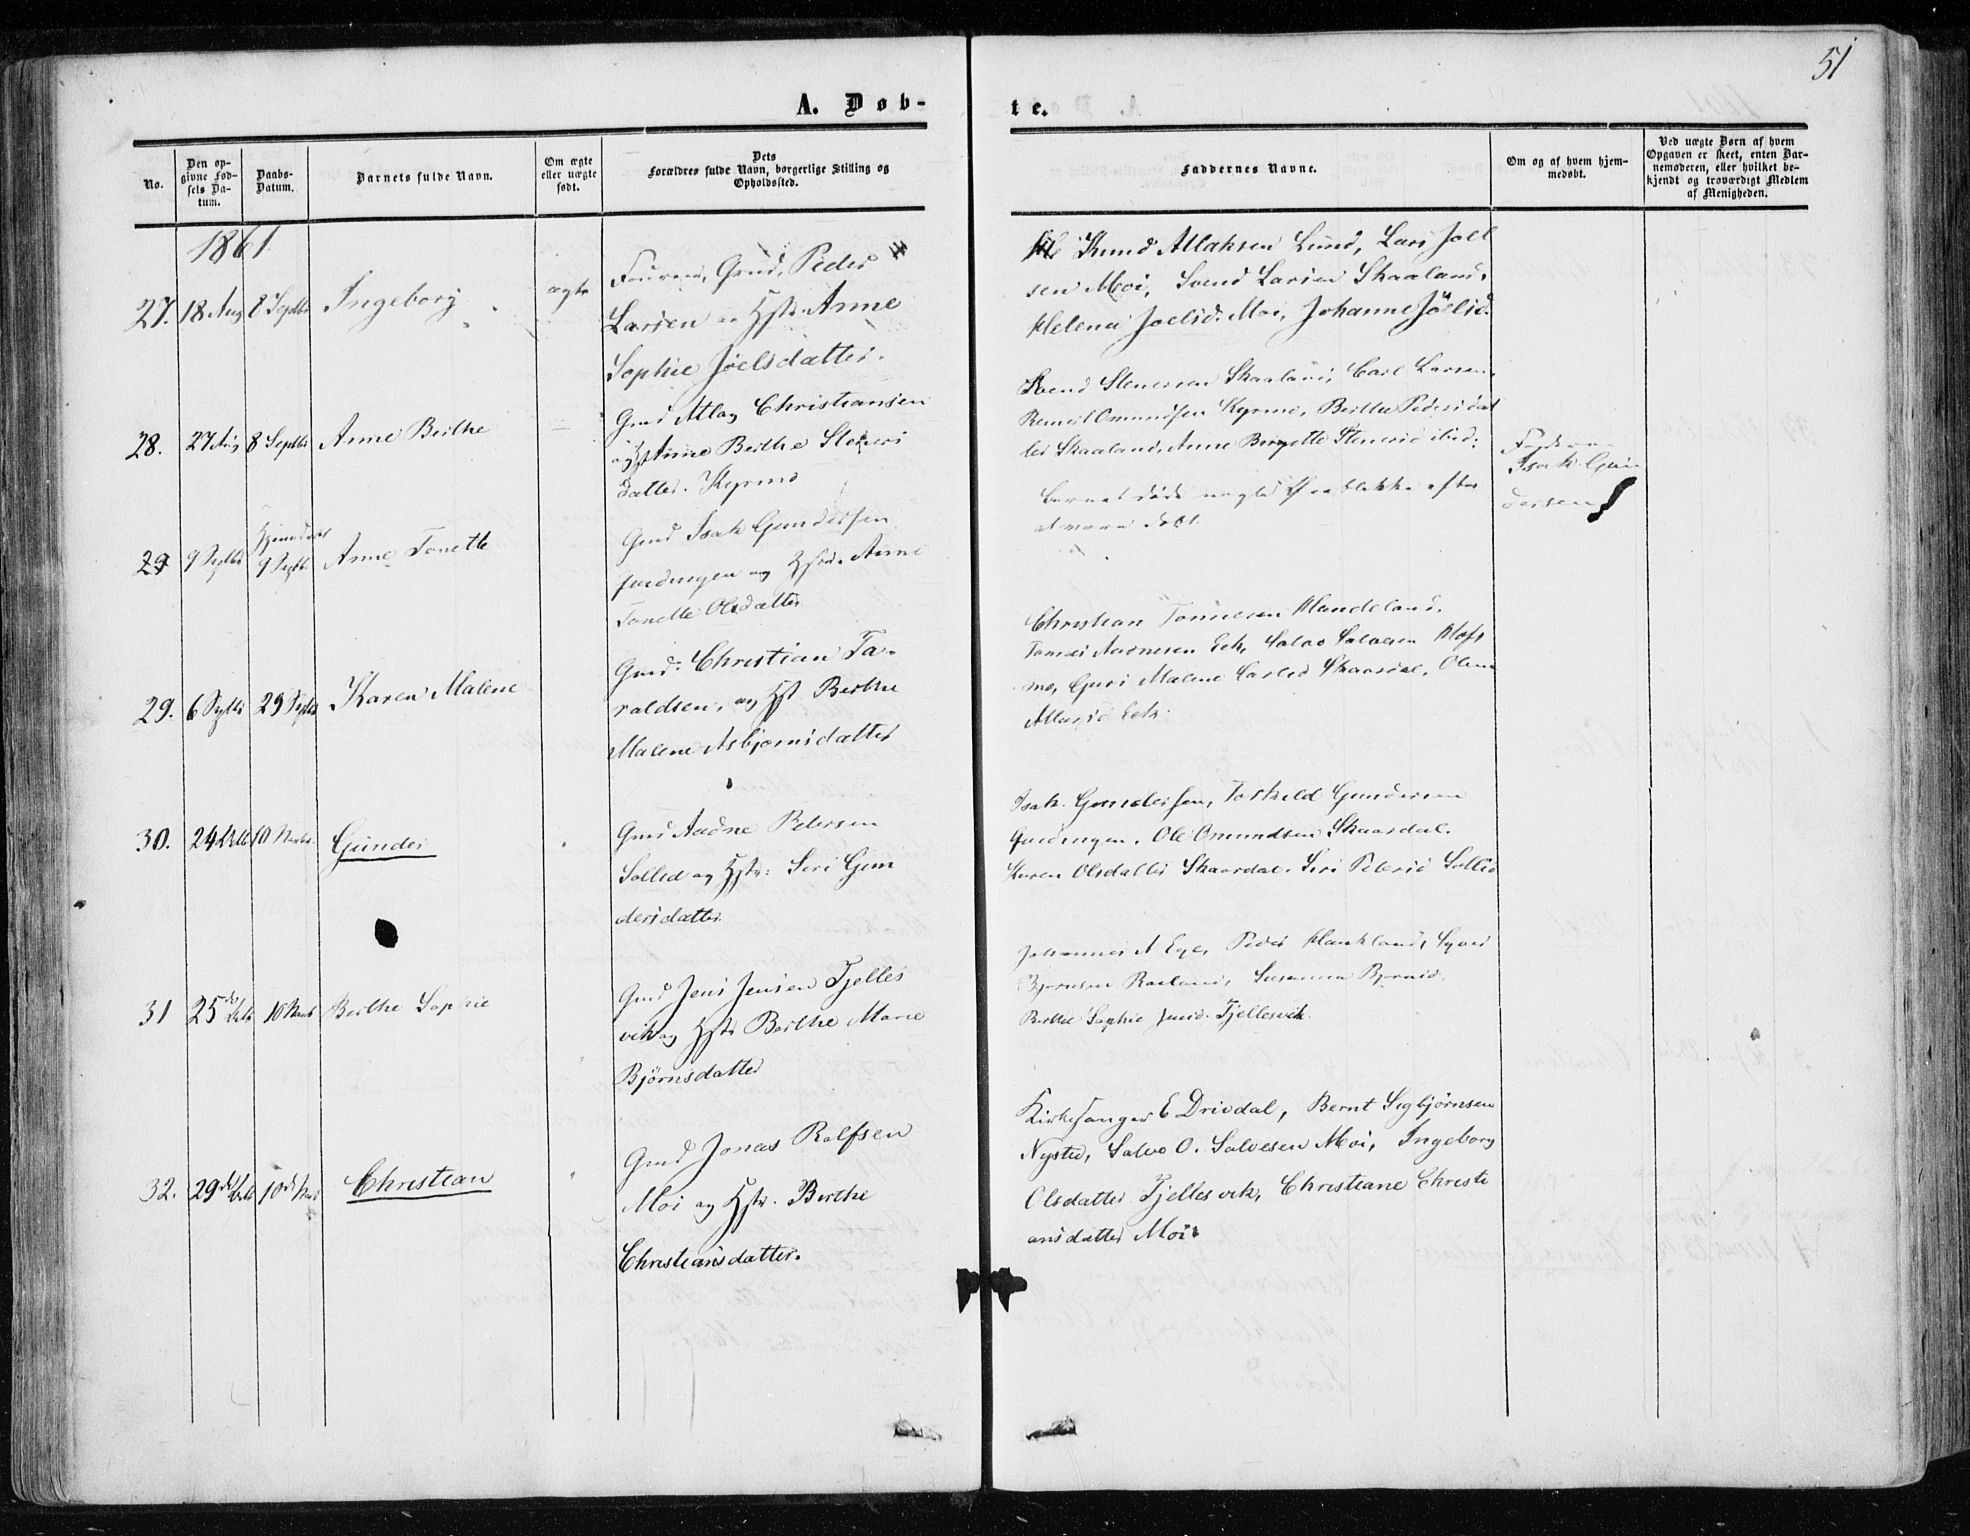 51
A. Døb-
te.
No.
Den op-
givne Fød-
sels Da-
tum.
Daabs-
Datum.
Barnets fulde Navn.
Om ægte
eller uægte
født.
Dets
Forældres fulde Navn, borgerlige Stilling og
Opholdssted.
Faddernes Navne.
Om og af hvem hjem-
medøbt.
Ved uægte Børn af hvem
Opgaven er skeet, enten Bar-
nemoderen, eller hvilket be-
kjendt og troværdigt Medlem
af Menigheden.
1861
27. 18 Aug 8 Septbr Ingeborg ægte
Gmd. Peder
Larsen Hstr. Anne
Sophie Joelsdatter.
Knud Atlaksen Lund, Lars Joel
sen Moi, Svend Larsen Skaaland,
Helena Joelsd. Moi, Johanne Joelsd.
28. 27 Aug 8 Septbr Anne Berthe
Gmd Atlag Christiansen
og Anne Berthe Steners
datter. Kyrmo
Svend Stenersen Skaaland, Carl Larsen,
Omundsen Kyrmo, Berthe Pedersdat
ter Skaaland, Anne Birgette Stenersd ibid:
29 9 Septbr Hjemdøbt 9 Septb Anne Tonette
Gmd Isak Gundersen
og Hstr. Anne
Tonette Olsdatter
Barnet døde nogle Øieblikke efter
at være døbt.
Faderen
Isak Gun
dersen
29. 6 Septbr 29 Septbr Karen Malene
Gmd: Christian Ta-
raldsen, og Hst Berthe
Malene Asbjørnsdatter
Christian Tønnesen Haudeland,
Tønnes Aadnesen Eek, Salve Salvesen
Guri Malene Skaardal,
Eek.
30. 24 10 Novbr. Gunder
Gmd Aadne Petersen
Solled og Hstr: Seri Gun
dersdatter.
Isak Gundersen, Torkild Gundersen
Ole Omundsen Skaardal.
Karen Olsdatter Skaardal. Siri Petersd Solled
31 25de 10 Novb Berthe Sophie
Gmd Jens Jensen Fjelles
vik og Hstr Berthe Marie
Bjørnsdatter
Johannes A Ege, Peder
Bjørnsen Susanna Bjørnsd.
Berthe Sophie Jensd. Fjellesvik.
32. 29de 10de Nov Christian
Gmd Jonas Rolfsen
Moi og Hstr. Berthe
Christiansdatter.
Kirkesanger E Drivdal, Bernt Sigbjørnsen
Nysted, Salve O. Salvesen Moi, Ingeborg
Olsdatter Fjellesvik, Christiane Christi
ansdatter Moi.